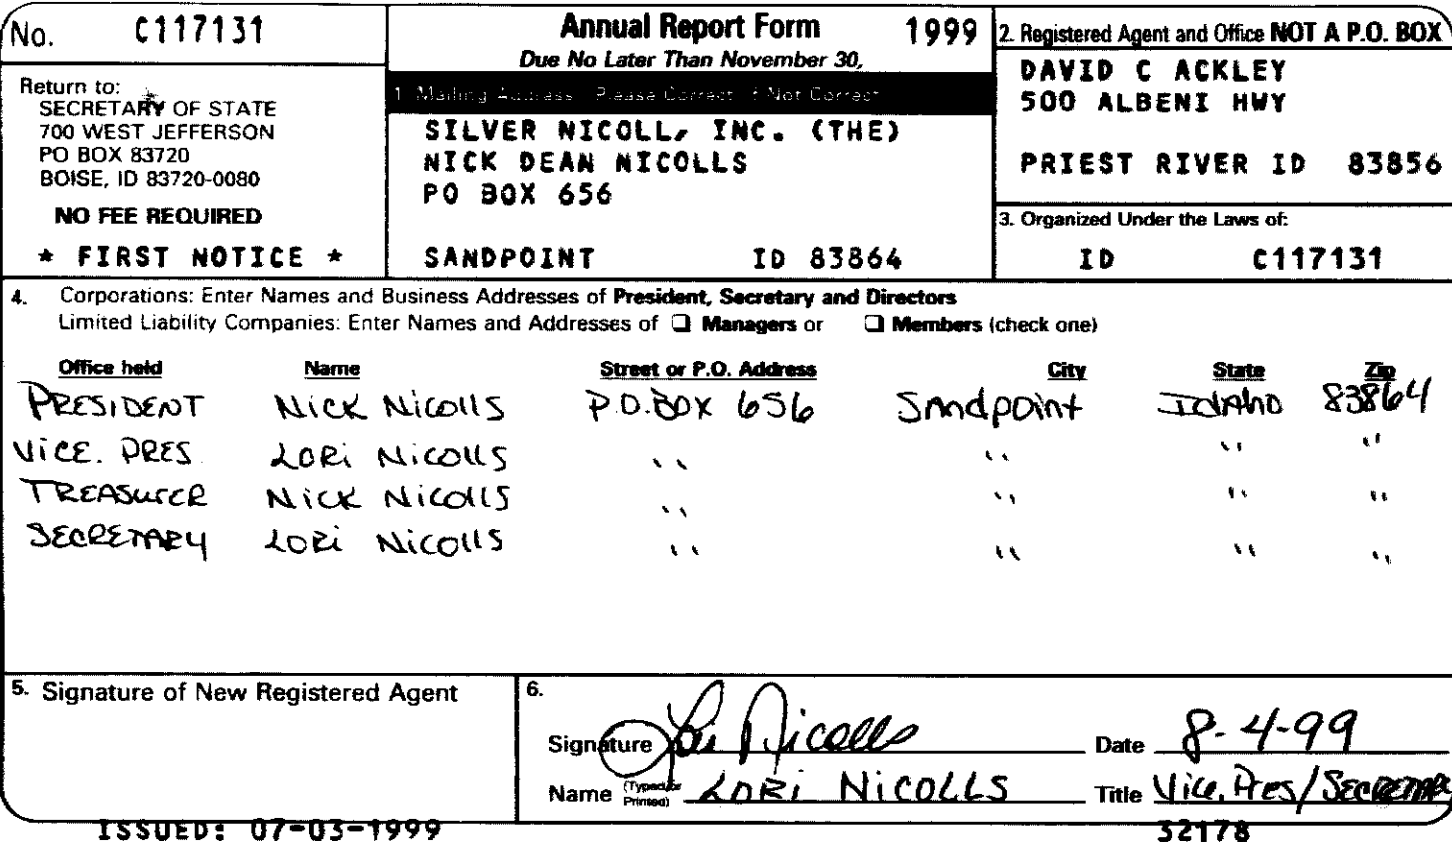 No. C117131
Annual Report Form 1999
Due No Later Than November 30,
Return to:
SECRETARY OF STATE
700 WEST JEFFERSON
PO BOX 83720
BOISE, ID 83720-0080
NO FEE REQUIRED
* FIRST NOTICE *
1. Mailing Address Please Correct If Not Correct
SILVER NICOLL, INC. (THE)
NICK DEAN NICOLLS
PO BOX 656
SANDPOINT ID 83864
2. Registered Agent and Office NOT A P.O. BOX
DAVID C ACKLEY
500 ALBENI HWY
PRIEST RIVER ID 83856
3. Organized Under the Laws of:
ID C117131
4. Corporations: Enter Names and Business Addresses of President, Secretary and Directors
Limited Liability Companies: Enter Names and Addresses of ❑ Managers or ❑ Members (check one)
Office held Name Street or P.O. Address City State Zip
PRESIDENT NICK NICOLLS P.O. BOX 656 Sandpoint IDAHO 83864
VICE. PRES. LORI NICOLLS " " " "
TREASURER NICK NICOLLS " " " "
SECRETARY LORI NICOLLS " " " "
5. Signature of New Registered Agent
6.
Signature Lori Nicolls Date 8-4-99
Name (Typed or Printed) LORI NICOLLS Title Vice. Pres/SECRETARY
ISSUED: 07-03-1999 32178